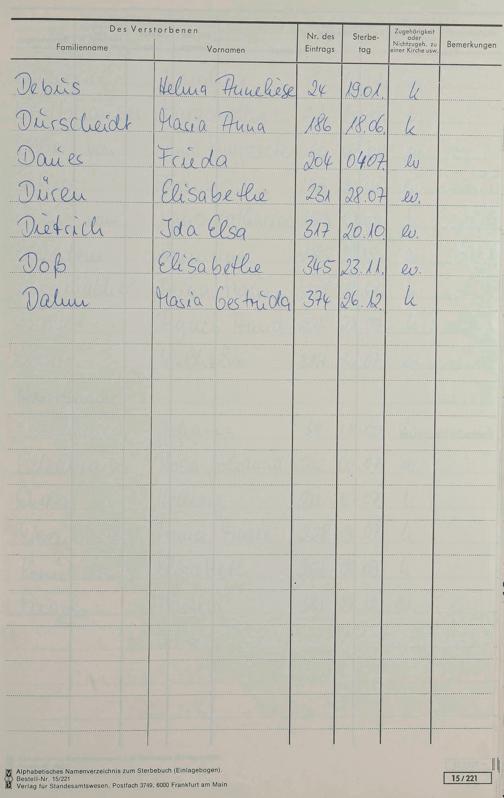 Des Verstorbenen
Familienname Vornamen Nr. des Eintrags Sterbe-tag Zugehörigkeit oder Nichtzugeh. zu einer Kirche usw. Bemerkungen
Debüs Helma Anneliese 24 19.01. k
Dürscheidt Maria Anna 186 18.06. k
Daues Frieda 204 0407. ev
Düren Elisabethe 231 28.07 ev.
Dietrich Ida Elsa 317 20.10. ev.
Doß Elisabethe 345 23.11. ev.
Dahm Maria Gertruda 374 26.12. k
Alphabetisches Namenverzeichnis zum Sterbebuch (Einlagebogen).
Bestell-Nr. 15/221
Verlag für Standesamtswesen. Postfach 3749, 6000 Frankfurt am Main
15/221